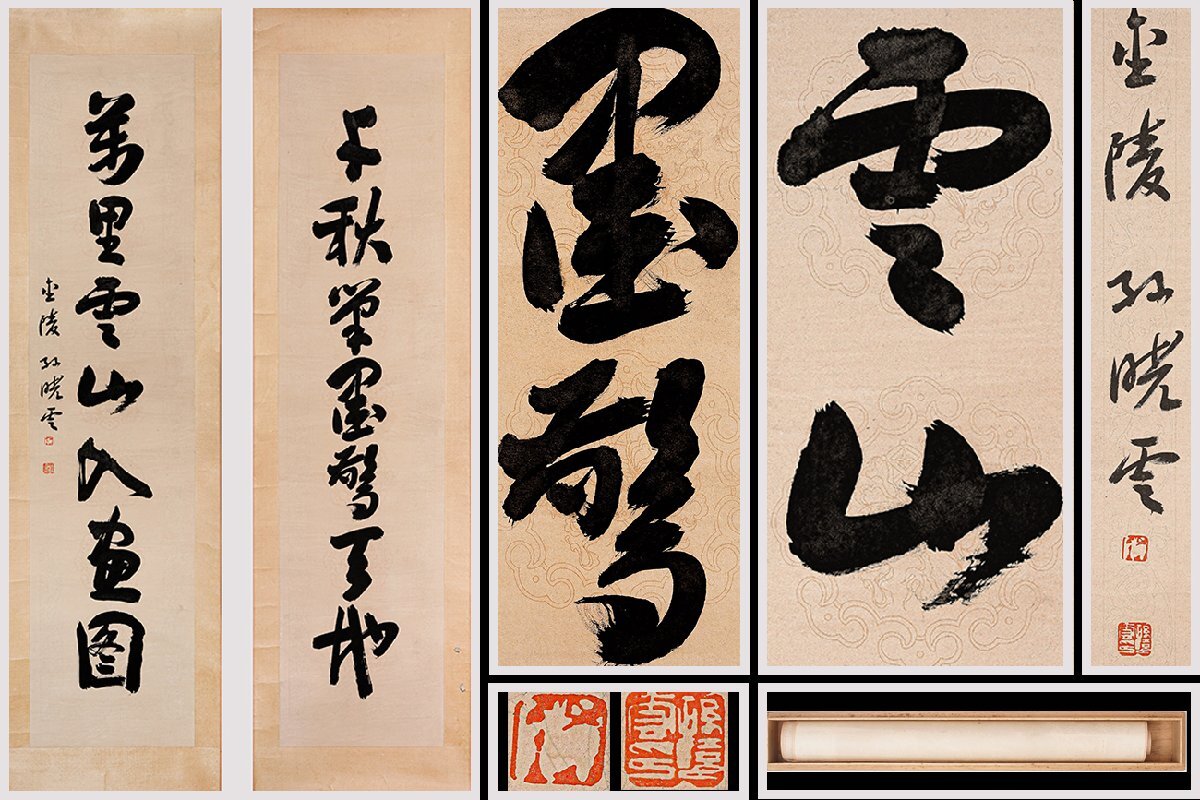 千秋筆墨驚天地
萬里雲山入畫图
金陵 孙晓雲
墨驚
雲山
金陵 孙晓雲